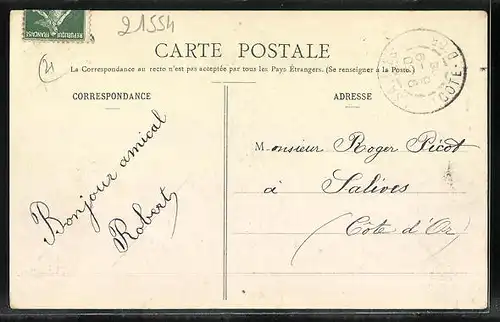 21554
RÉPUBLIQUE FRANÇAISE
CARTE POSTALE
21
La Correspondance au recto n'est pas acceptée par tous les Pays Étrangers. (Se renseigner à la Poste.)
CORRESPONDANCE
ADRESSE
CÔTE-D'OR
Bonjour amical
Robert
Monsieur Roger Picot
à Salives
(Côte d'Or)